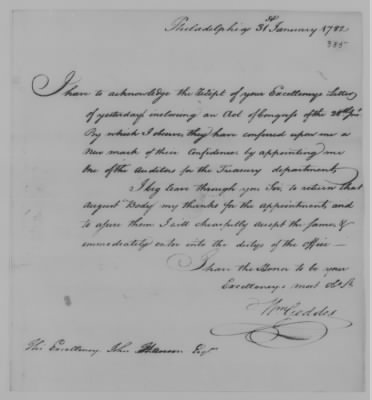 Philadelphia 31st January 1782
385
I have to acknowledge the Receipt of your Excellencys Letter
of yesterday inclosing an Act of Congress of the 28th Jany
By which I observe, they have conferred upon me a
New mark of their Confidence by appointing me
One of the Auditors for the Treasury department,
I beg leave through you Sir, to return that
August Body my thanks for the appointment, and
to assure them I will chearfully accept the same, &
immediately enter into the dutys of the office —
I have the Honor to be your
Excellencys most Obt St
Wm Geddes
His Excellency John Hanson Esqr